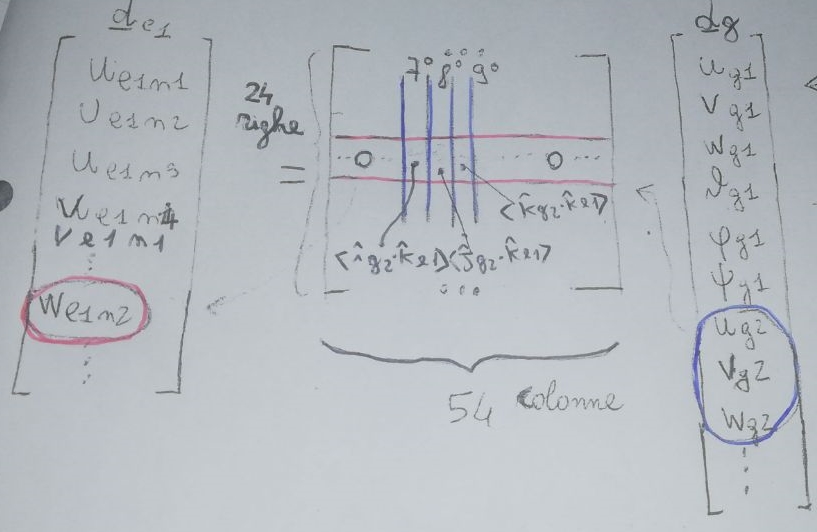 d e1 = d g
u e1n1
u e1n2
u e1n3
u e1n4
v e1n1
⋮
w e1n2
⋮
24
righe
=
...
7° 8° 9°
... 0 ... 0 ...
<k̂g2·k̂e1>
<îg2·k̂e1> <ĵg2·k̂e1>
...
54 colonne
u g1
v g1
w g1
ϑ g1
φ g1
ψ g1
u g2
v g2
w g2
⋮